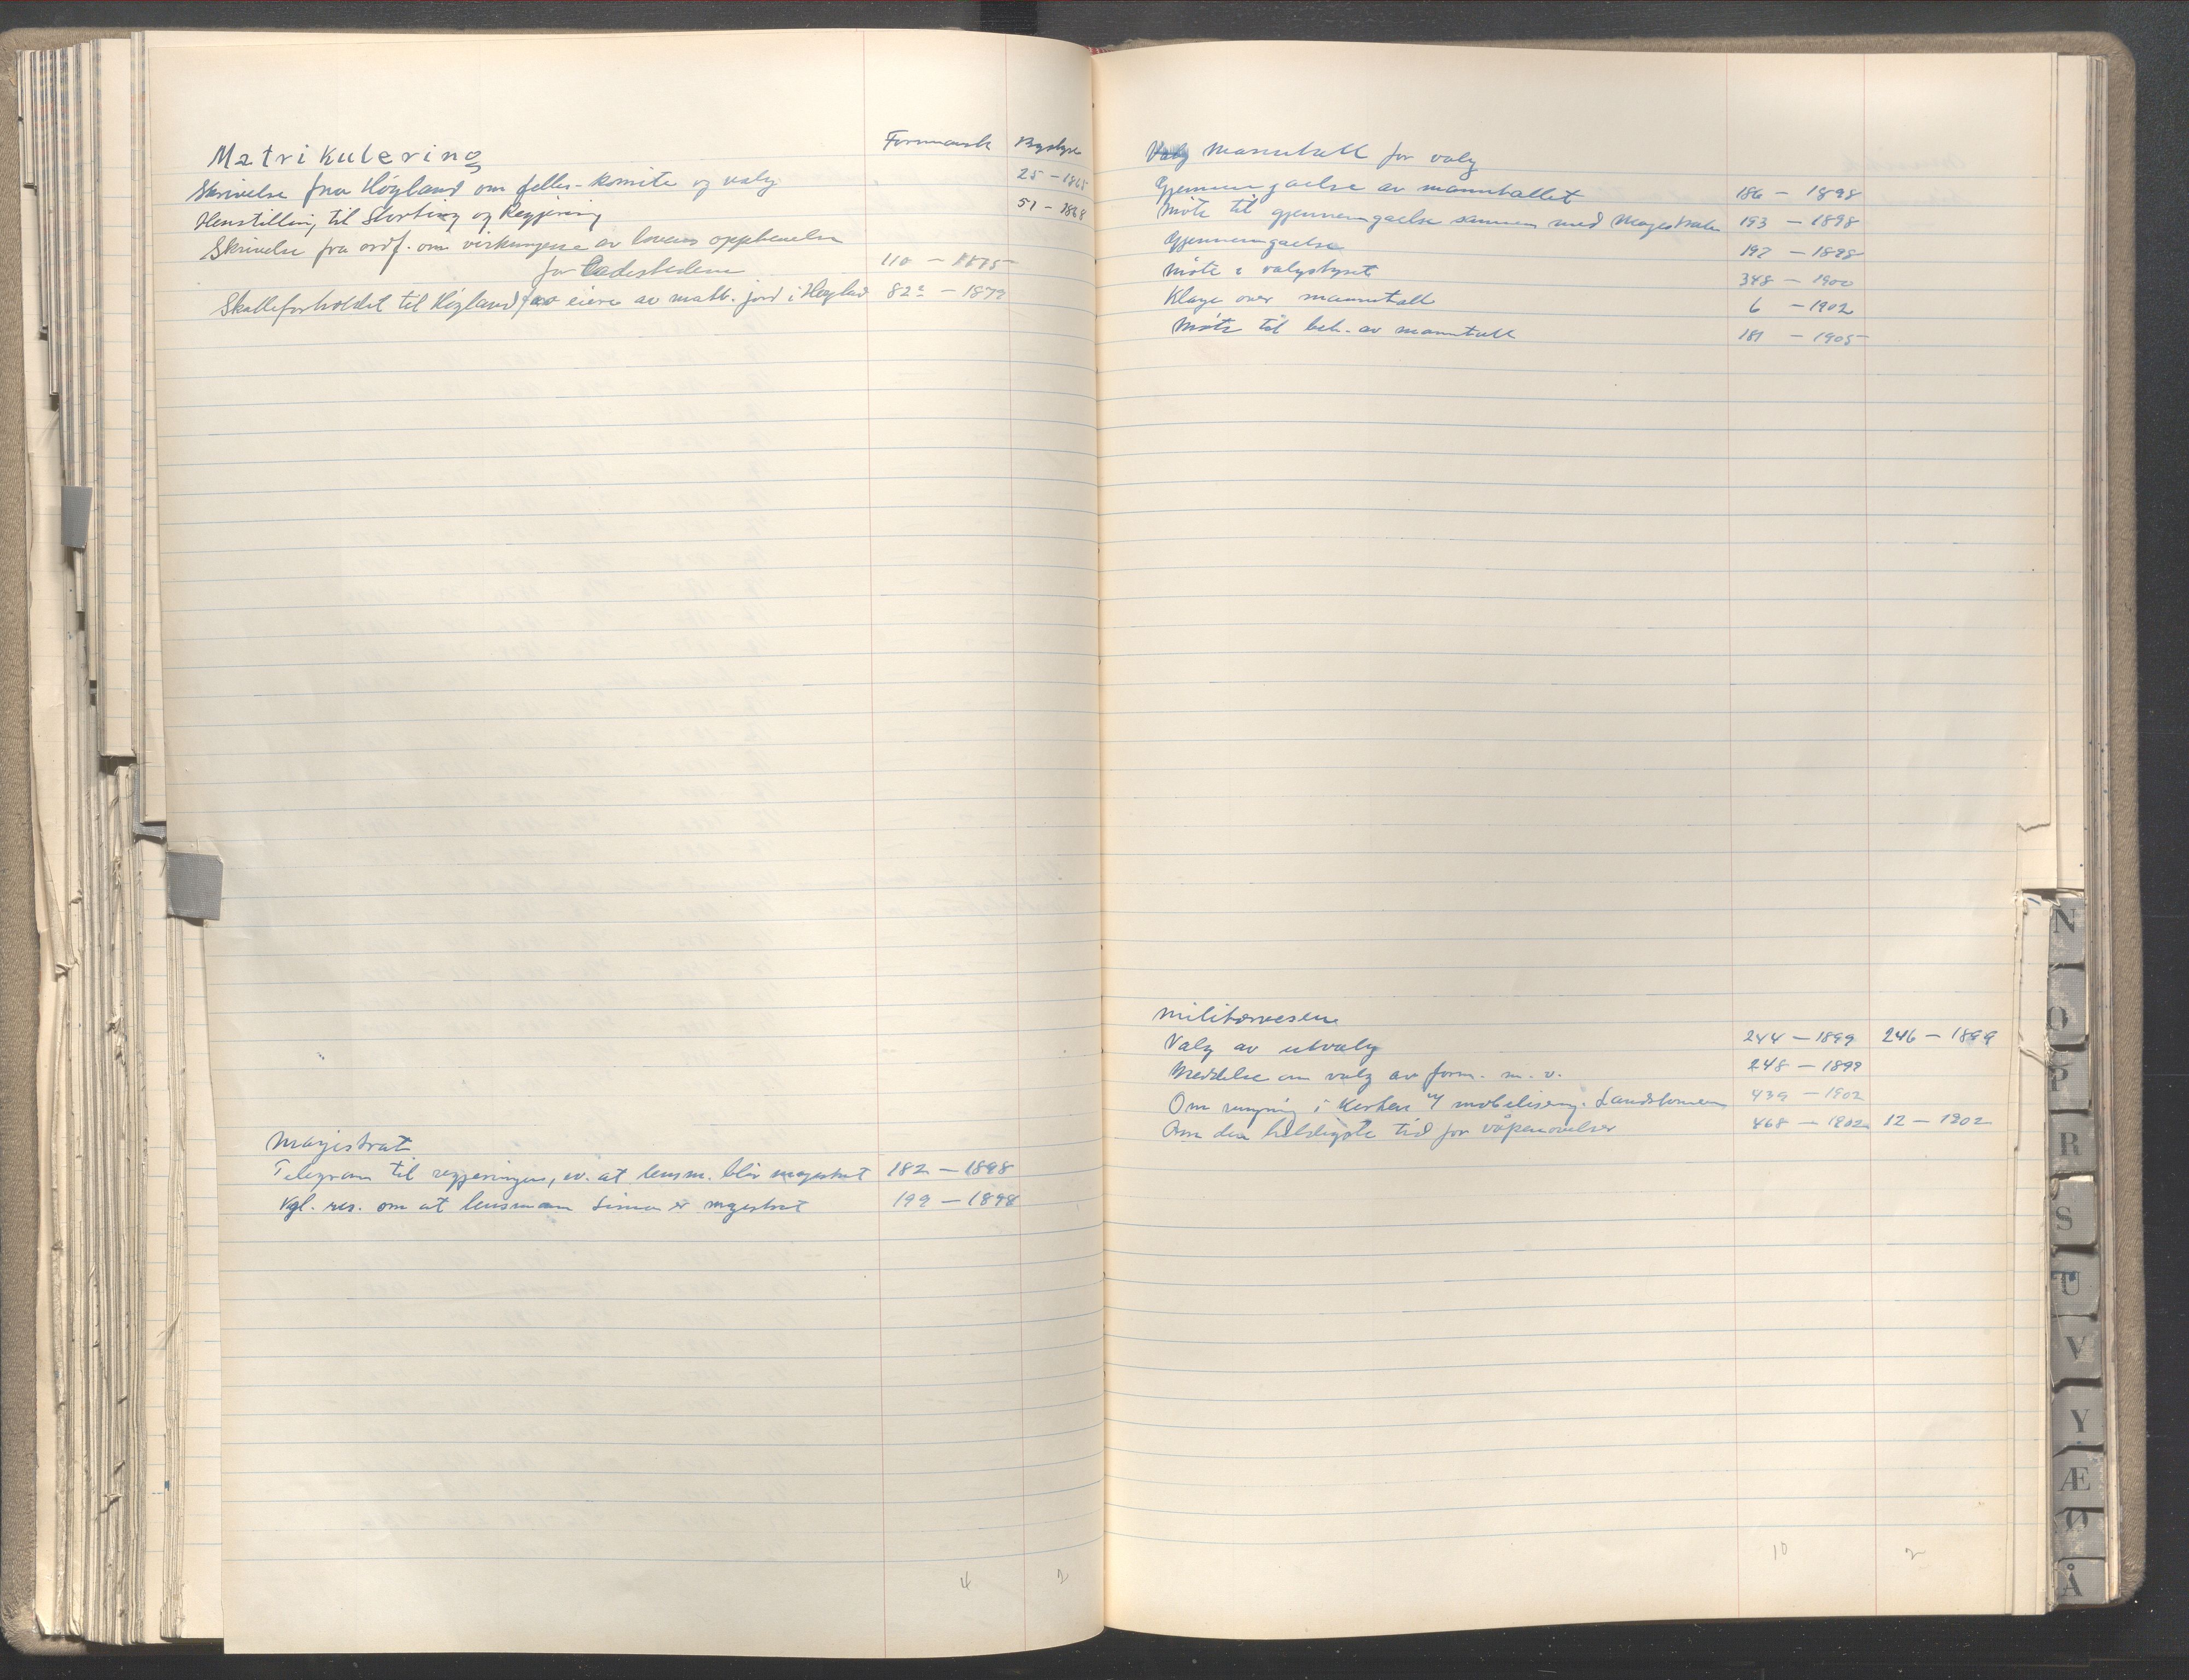 Matrikulering Formannsk Bystyre
Skrivelse fra Høyland om felles-komite og valg 25 – 1865
Henstilling til Storting og Regjering 51 – 1868
Skrivelse fra ordf. om virkningene av lovens opphevelse
for Ladestedene 110 – 1875
Skatteforholdet til Høyland for eiere av matr. jord i Høyland 82 – 1879
Magistrat
Telegram til regjeringen, at lensm. blir magistrat 182 – 1898
Kgl. res. om at lensmann er magistrat 199 – 1898
4 2
Valg Manntall for valg
Gjennemgaelse av manntallet 186 – 1898
Møte til gjennemgaelse sammen med Magistraten 193 – 1898
Gjennemgaelse 197 – 1898
Møte i valgstyret 348 – 1900
Klage over manntall 6 – 1902
Møte til beh. av manntall 181 – 1905
Militærvesen
Valg av utvalg 244 – 1899 246 – 1899
Meddelelse om valg av form. m. v. 248 – 1899
Om ringning i kirken v/ mobilisering. Landstormen 439 – 1902
Om den heldigste tid for våpenøvelser 468 – 1902 12 – 1902
10 2
N
O
P
R
S
U
V
Y
Æ
Ø
Å